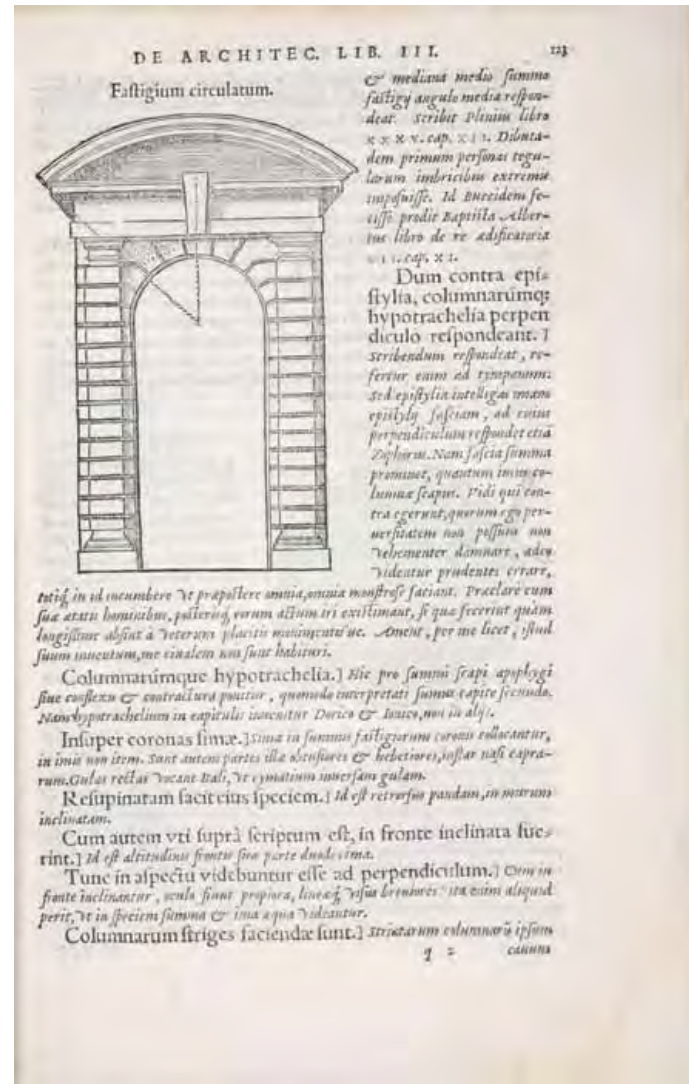 DE ARCHITEC. LIB. III. 123
Faſtigium circulatum.
& mediana medio ſummo
faſtigij angulo media reſpon-
deat. Scribit Plinius libro
XXXV. cap. XII. Dibuta-
dem primum perſonas tegu-
larum imbricibus extremis
impoſuiſſe. Id Buccidem fe-
ciſſe prodit Baptiſta Alber-
tus libro de re ædificatoria
VII. cap. XI.
Dum contra epi-
ſtylia, columnarúmq;
hypotrachelia perpen
diculo reſpondeant.]
Scribendum reſpondeat, re-
fertur enim ad tympanum:
Sed epiſtylia intelligas imam
epiſtylij faſciam, ad cuius
perpendiculum reſpondet etiã
Zophorus. Nam faſcia ſumma
prominet, quantum imus co-
lumnæ ſcapus. Vidi qui con-
tra egerunt, quorum ego per-
uerſitatem non poſſum non
vehementer damnare, adeo
videntur prudentes errare,
totiq; in id incumbere vt præpoſtere omnia, omnia monſtroſe faciant. Præclare cum
ſuæ ætatis hominibus, poſteriſq; eorum actum iri exiſtimant, ſi quæ fecerint quàm
longiſſime abſint à veterum placitis monumentis'ue. Ament, per me licet, iſtud
ſuum inuentum, me riualem non ſunt habituri.
Columnarúmque hypotrachelia.] Hic pro ſummi ſcapi apophygi
ſiue conflexu & contractura ponitur, quomodo interpretati ſumus capite ſecundo.
Nam hypotrachelium in capitulis inuenitur Dorico & Ionico, non in alijs.
Inſuper coronas ſimæ.] Simæ in ſummis faſtigiorum coronis collocantur,
in imis non item. Sunt autem partes illæ obtuſiores & hebetiores, inſtar naſi capra-
rum. Gulas rectas vocant Itali, vt cymatium inuerſam gulam.
Reſupinatam facit eius ſpeciem.] Id eſt retrorſus pandam, in murum
inclinatam.
Cum autem vti ſuprà ſcriptum eſt, in fronte inclinata fue-
rint.] Id eſt altitudinis frontis ſuæ parte duodecima.
Tunc in aſpectu videbuntur eſſe ad perpendiculum.] Cum in
fronte inclinantur, oculo fiunt propiora, lineæq; viſus breuiores: ita enim aliquid
perit, vt in ſpeciem ſumma & ima æqua videantur.
Columnarum ſtriges faciendæ ſunt.] Striatarum columnarũ ipſum
q 2 cauum